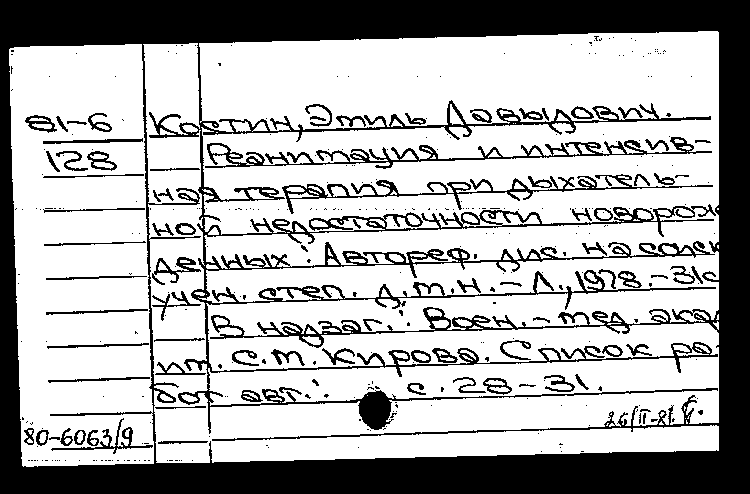 81-6 Костин, Эмиль Давыдович.
128 Реанимация и интенсив-
ная терапия при дыхатель-
ной недостаточностиноворож
денных: Автореф. дис. на соиск
учен. степ. д.м.н. - Л., 1978. - 31с
В надзаг.: Воен.-мед. акад
им. С.М. Кирова. Список ра-
бот авт.: с. 28-31.
80-6063/9 26/II-81